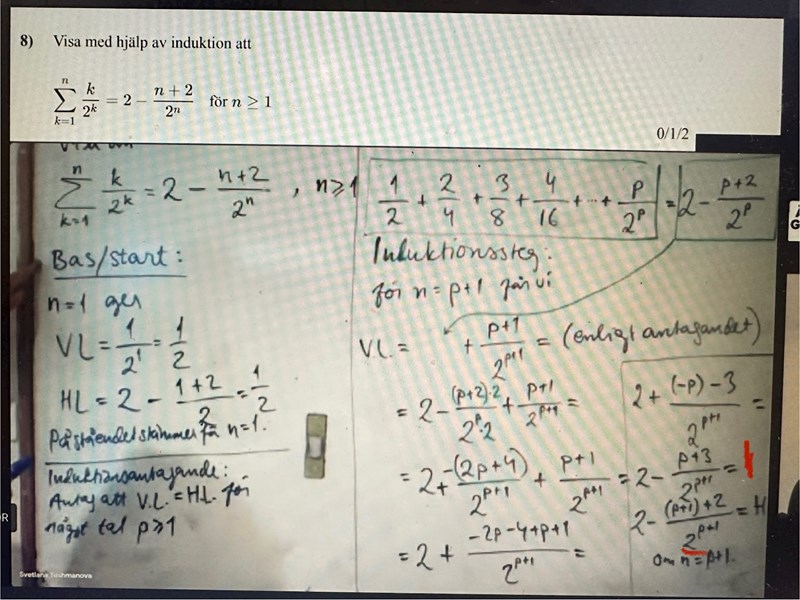 8) Visa med hjälp av induktion att
n
∑ k/2^k = 2 − (n + 2)/2^n för n ≥ 1
k=1
0/1/2
n
∑ k/2^k = 2 − (n+2)/2^n , n ≥ 1
k=1
Bas/start:
n=1 ger
VL = 1/2^1 = 1/2
HL = 2 − (1+2)/2 = 1/2
Påståendet stämmer för n=1.
Induktionsantagande:
Antag att V.L. = H.L. för
något tal p ≥ 1
1/2 + 2/4 + 3/8 + 4/16 + ... + p/2^p = 2 − (p+2)/2^p
Induktionssteg:
för n = p+1 får vi
V.L. = + (p+1)/2^(p+1) = (enligt antagandet)
= 2 − (p+2)·2/(2^p·2) + (p+1)/2^(p+1) =
= 2 + −(2p+4)/2^(p+1) + (p+1)/2^(p+1) =
= 2 + (−2p−4+p+1)/2^(p+1) =
2 + ((−p)−3)/2^(p+1) =
= 2 − (p+3)/2^(p+1) =
2 − ((p+1)+2)/2^(p+1) = H
om n = p+1.
Svetlana Tashmanova